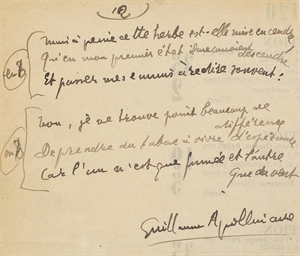 (2)
mais à peine cette herbe est-elle mise en cendre
Qu'en mon premier état il me convient descendre
Et passer mes ennuis à redire souvent.
Non, je ne trouve point beaucoup de
différence
De prendre du tabac à vivre d'espérance
Car l'un n'est que fumée et l'autre
que du vent
Guillaume Apollinaire